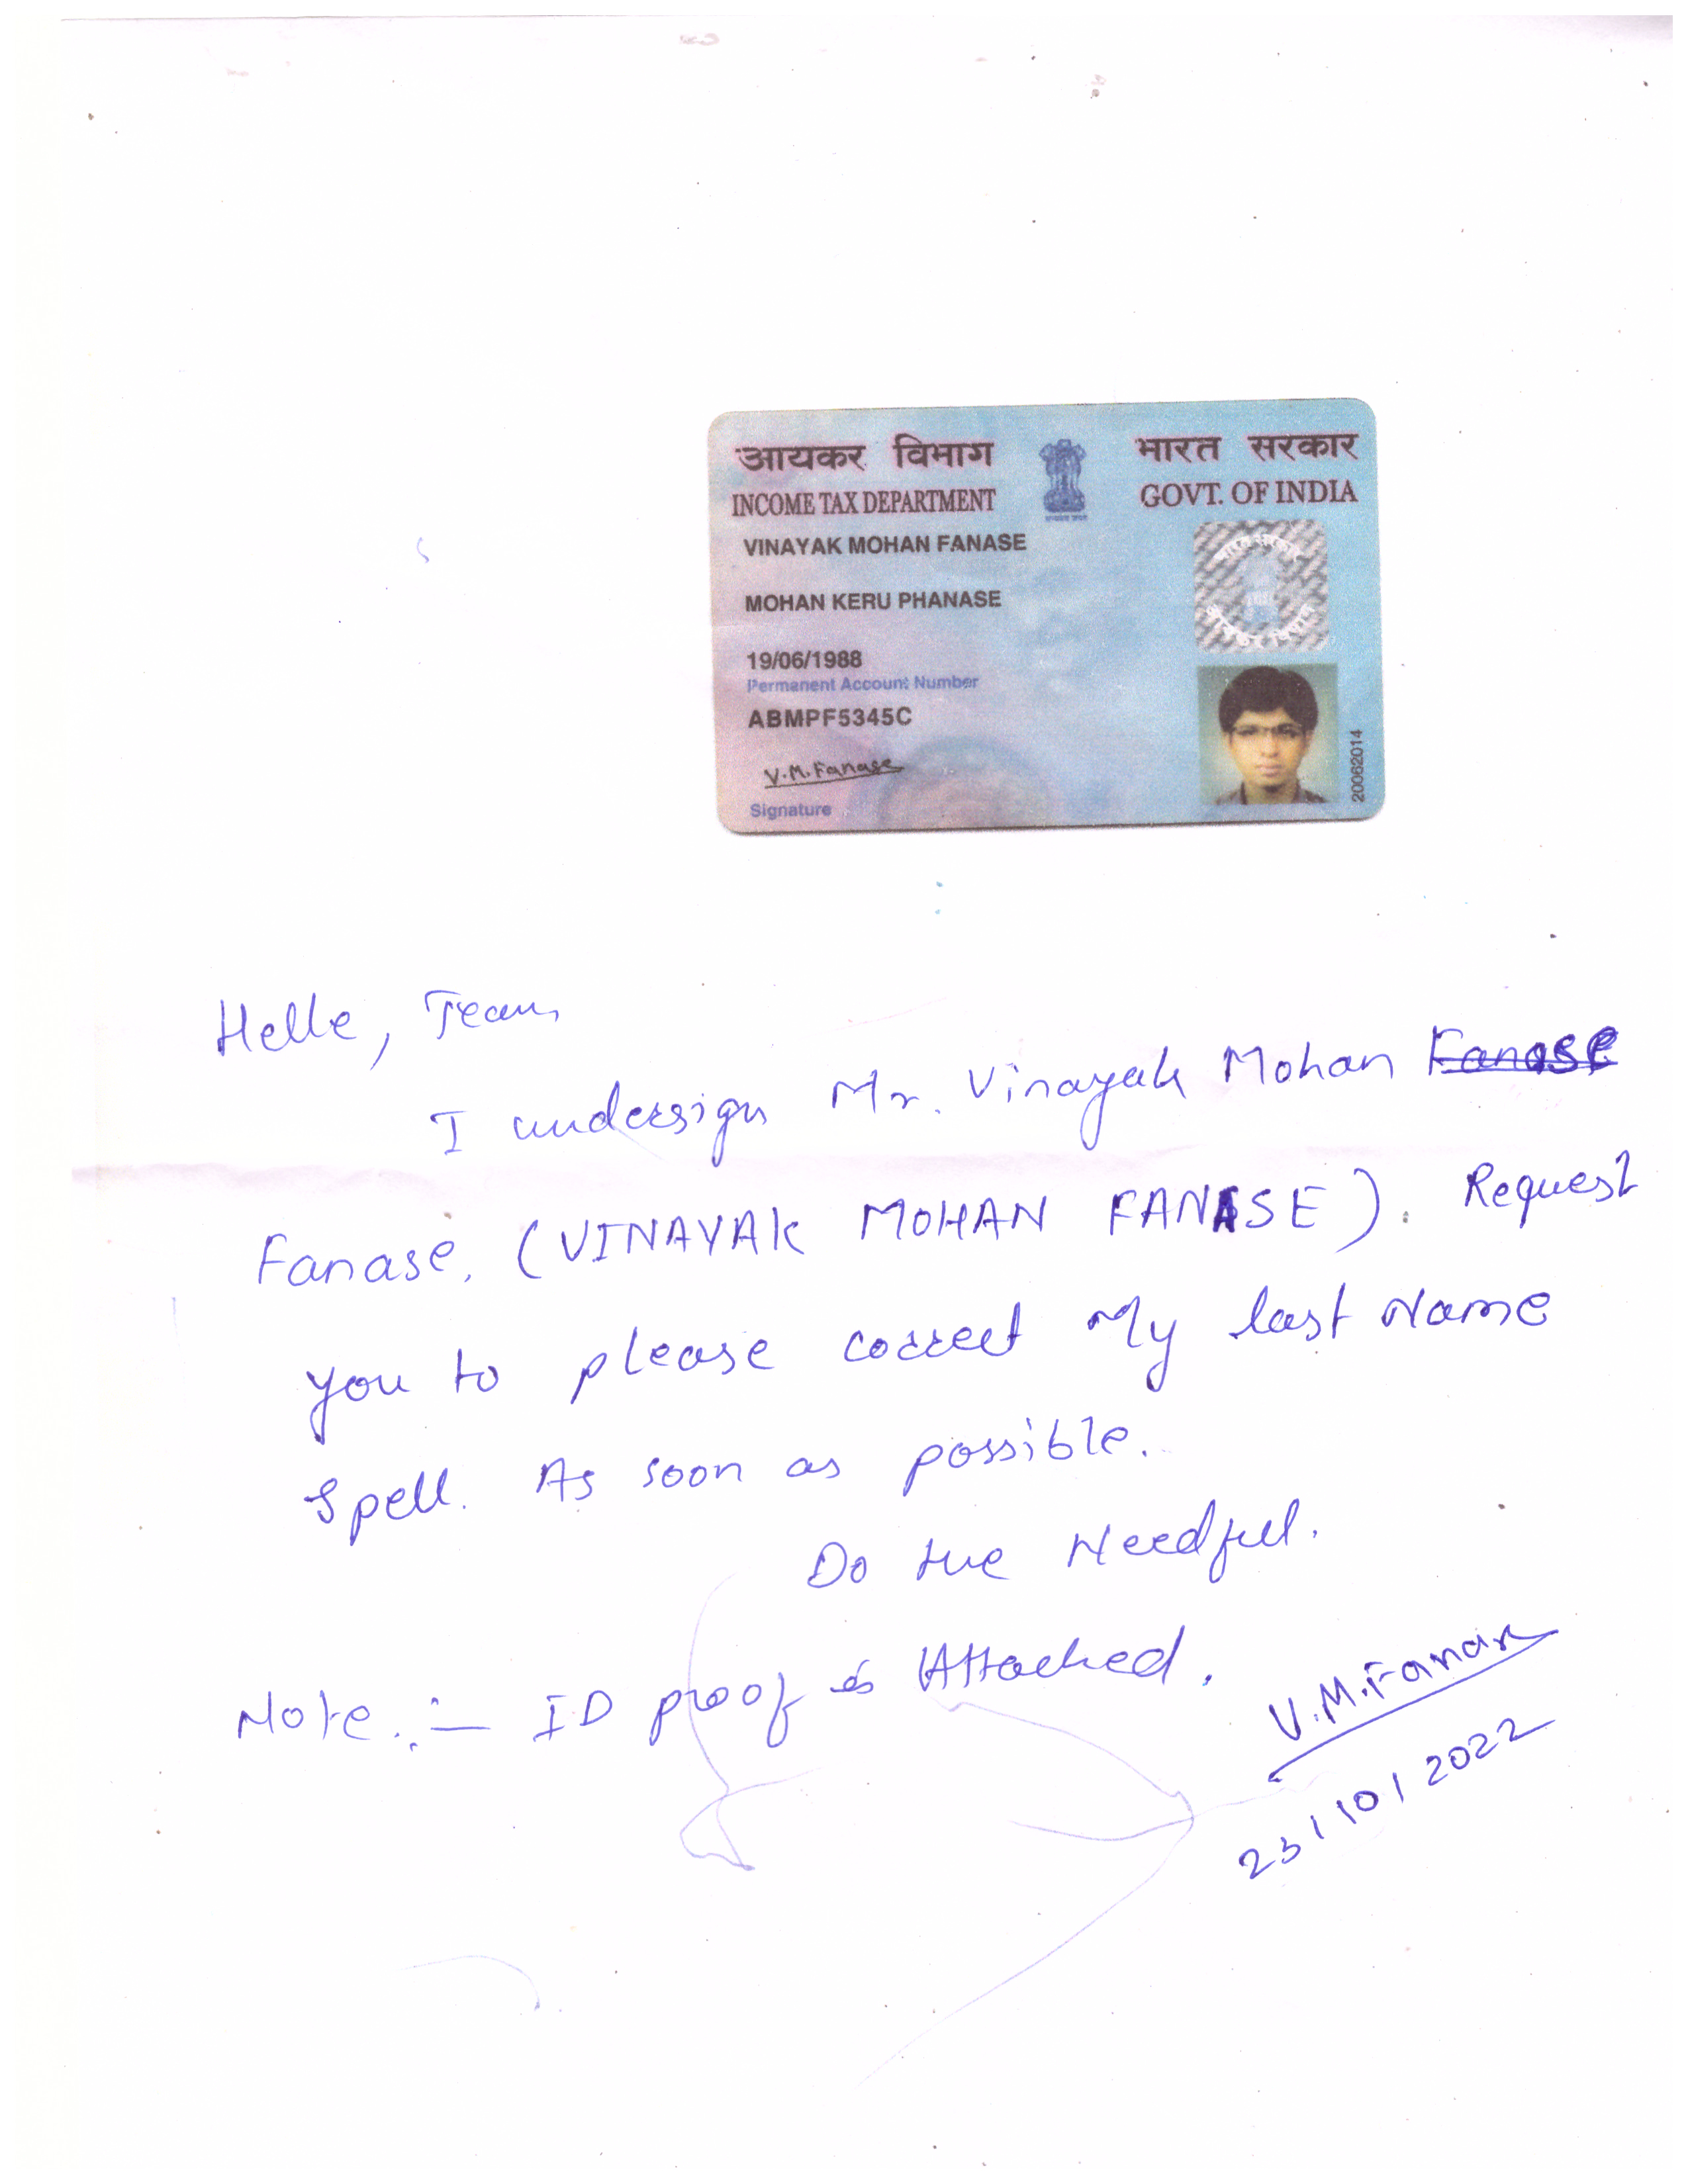 आयकर विभाग
INCOME TAX DEPARTMENT
भारत सरकार
GOVT. OF INDIA
VINAYAK MOHAN FANASE
MOHAN KERU PHANASE
19/06/1988
Permanent Account Number
ABMPF5345C
V.M.Fanase
Signature
20062014
Hello, Team,
I undersign Mr. Vinayak Mohan Fanase
Fanase. (VINAYAK MOHAN FANASE). Request
you to please correct My last Name
Spell. As soon as possible.
Do the Needful.
Note.:- ID proof is Attached.
V.M.Fanase
23/10/2022